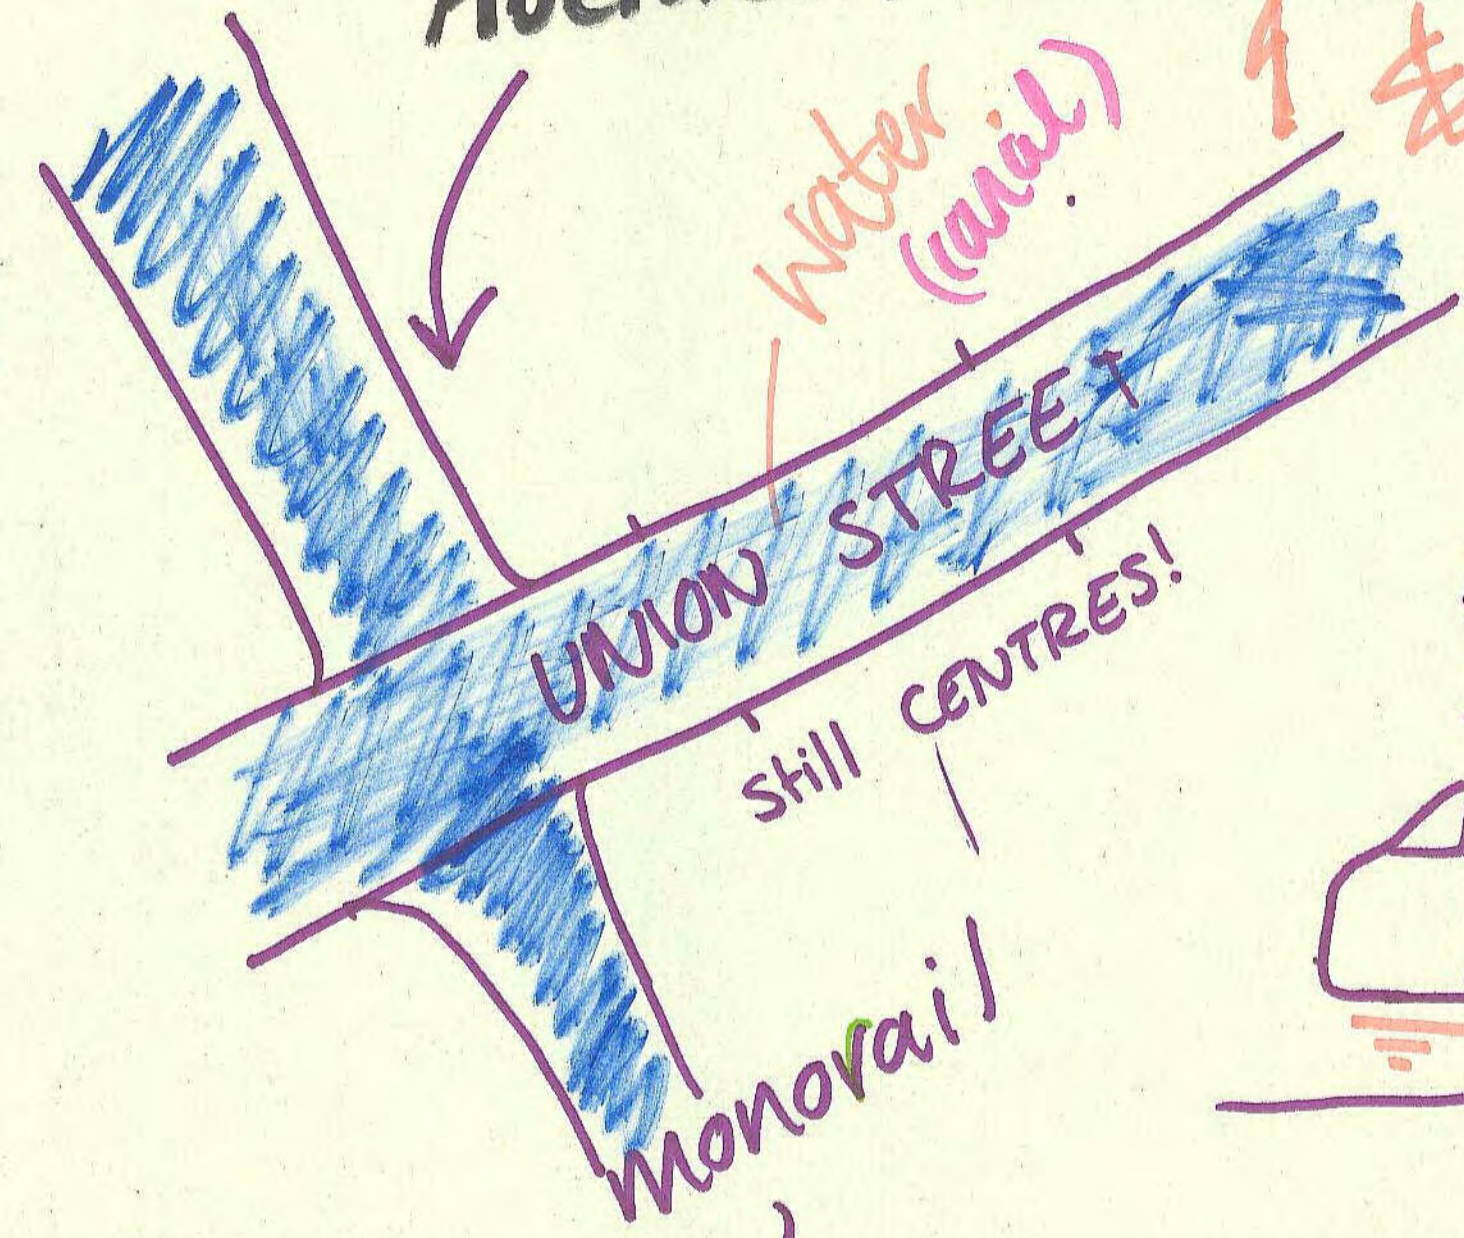 water
(canal)
UNION STREET
Still CENTRES!
monorail